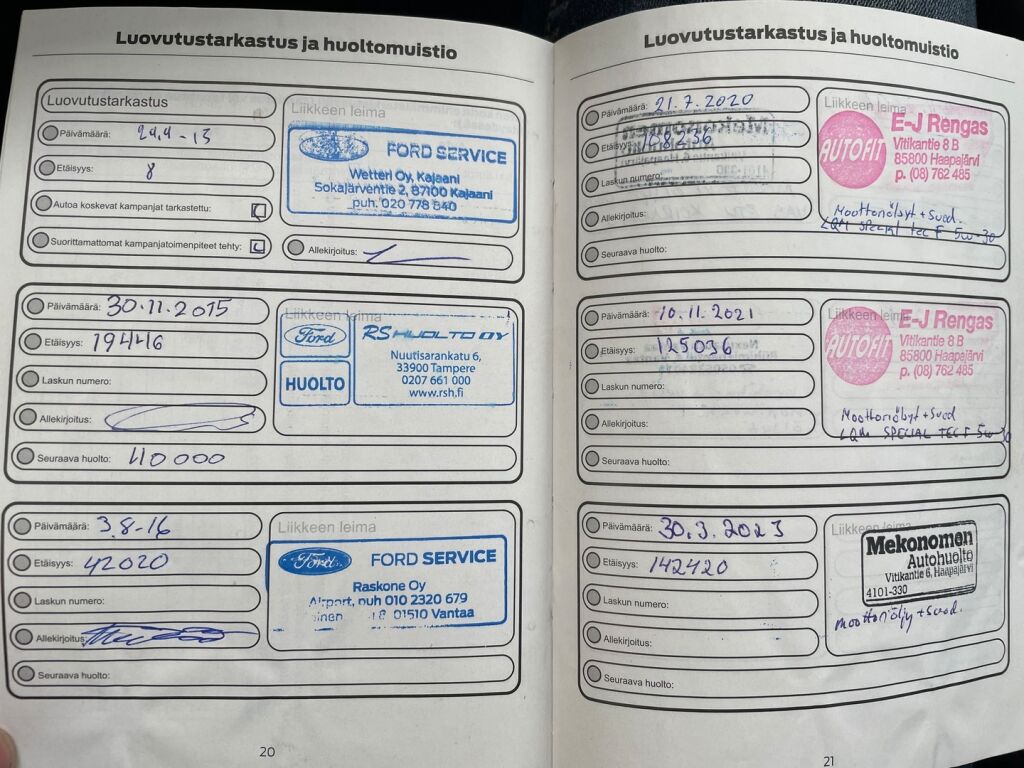 Luovutustarkastus ja huoltomuistio
Luovutustarkastus
Päivämäärä: 29.4-15
Etäisyys: 8
Autoa koskevat kampanjat tarkastettu:
Suorittamattomat kampanjatoimenpiteet tehty:
Liikkeen leima
Ford
FORD SERVICE
Wetteri Oy, Kajaani
Sokajärventie 2, 87100 Kajaani
puh. 020 778 840
Allekirjoitus:
Päivämäärä: 30.11.2015
Etäisyys: 19446
Laskun numero:
Allekirjoitus:
Seuraava huolto: 40000
Liikkeen leima
Ford
HUOLTO
RS HUOLTO OY
Nuutisarankatu 6,
33900 Tampere
0207 661 000
www.rsh.fi
Päivämäärä: 3.8-16
Etäisyys: 42020
Laskun numero:
Allekirjoitus:
Seuraava huolto:
Liikkeen leima
Ford
FORD SERVICE
Raskone Oy
Airport, puh 010 2320 679
01510 Vantaa
20
Luovutustarkastus ja huoltomuistio
Päivämäärä: 21.7.2020
Etäisyys: 108236
Laskun numero:
Allekirjoitus:
Seuraava huolto:
Liikkeen leima
AUTOFIT
E-J Rengas
Vitikantie 8 B
85800 Haapajärvi
p. (08) 762 485
LQM SPECIAL TEC F 5W-30
Päivämäärä: 10.11.2021
Etäisyys: 125036
Laskun numero:
Allekirjoitus:
Seuraava huolto:
Liikkeen leima
AUTOFIT
E-J Rengas
Vitikantie 8 B
85800 Haapajärvi
p. (08) 762 485
LQM SPECIAL TEC F 5W-30
Päivämäärä: 30.3.2023
Etäisyys: 142420
Laskun numero:
Allekirjoitus:
Seuraava huolto:
Liikkeen leima
Mekonomen
Autohuolto
Vitikantie 6, Haapajärvi
4101-330
moottoriöljy + suod.
21